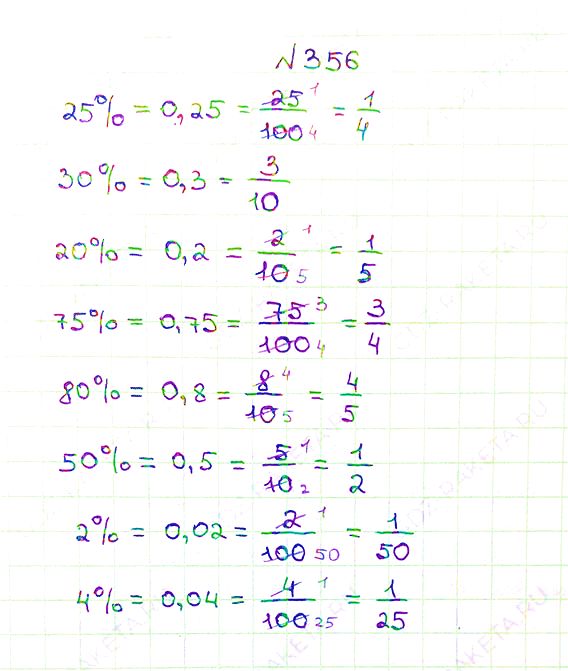 №356
25% = 0,25 = 25¹/100₄ = 1/4
30% = 0,3 = 3/10
20% = 0,2 = 2¹/10₅ = 1/5
75% = 0,75 = 75³/100₄ = 3/4
80% = 0,8 = 8⁴/10₅ = 4/5
50% = 0,5 = 5¹/10₂ = 1/2
2% = 0,02 = 2¹/100₅₀ = 1/50
4% = 0,04 = 4¹/100₂₅ = 1/25